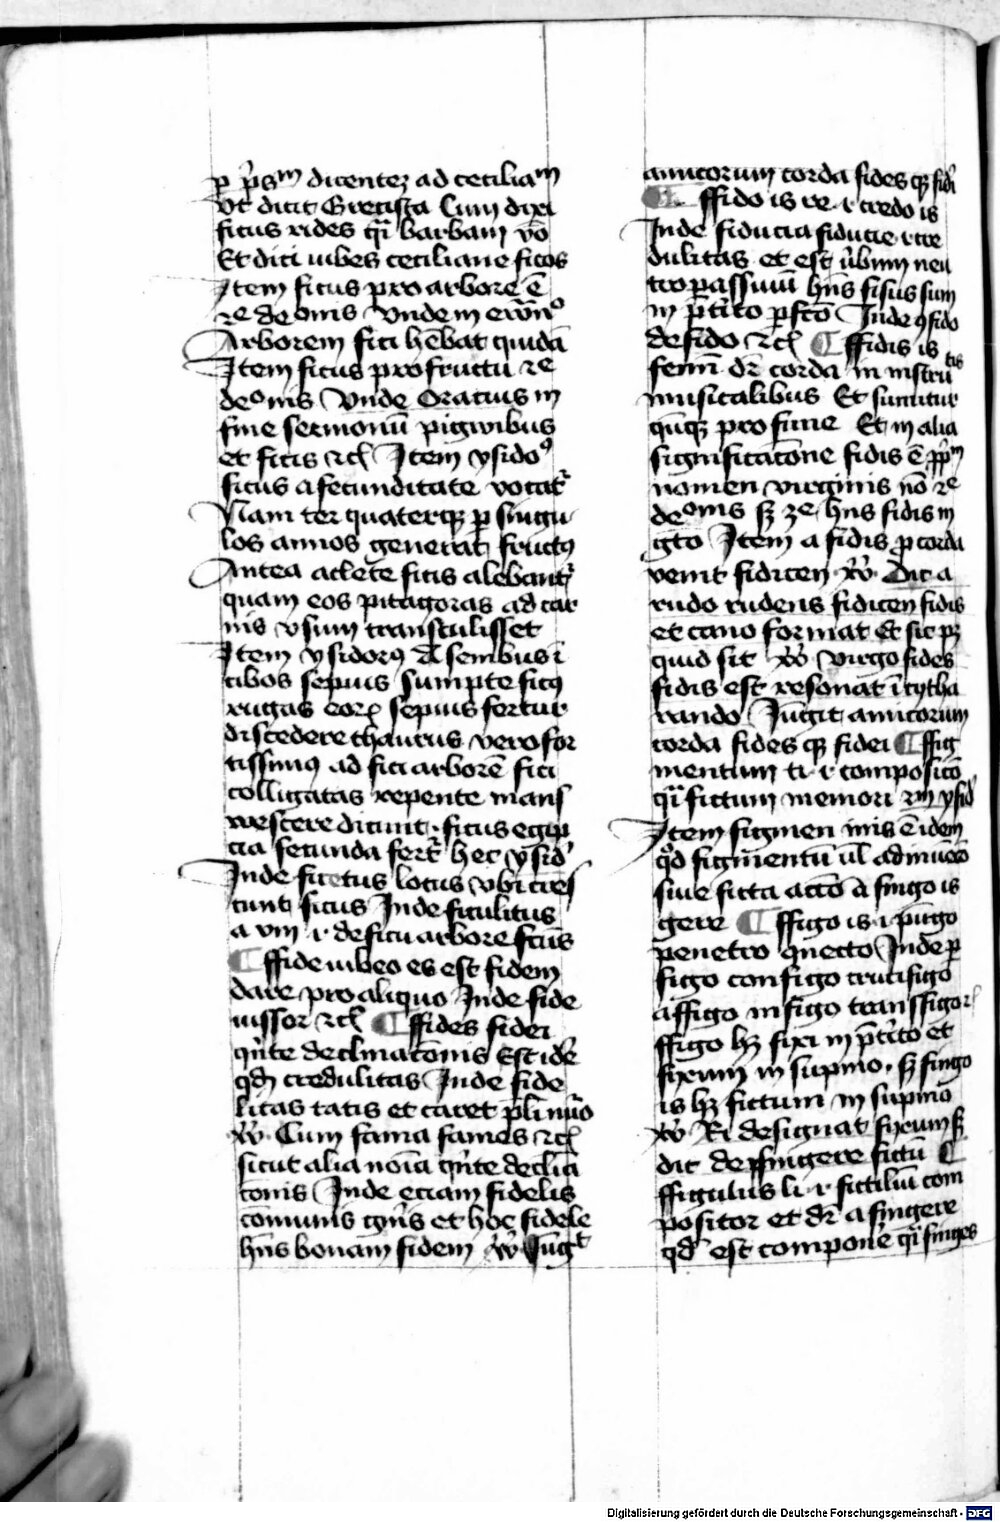 p p̄sm dicentez ad ceciliam
Vt dicit Grecista Cum dixi
ficus rides qi barbam vo
Et dici iubes ceciliane ficos
Item ficus pro arbore ē
2e deonis Vnde in ewno
Arborem fici hēbat quidā
Item ficus pro fructu 2e
deonis Vnde Oracius in
fine sermonū pigwibus
et ficis rcͣ Item ysido9
ficus a fecunditate vocatr
Nam ter quaterqz p singu
los annos generat fructꝰ
Antea aclete ficis alebantr
quam eos pitagoras ad car
nis vsum transtulisset
Item ysidorꝰ A senibus ī
cibos sepius sumpte ficꝰ
rugas eorꝝ sepius fertur
discedere thaurus vero for
tissimꝰ ad fici arborē fici
colligatas repente mans
wescere dicunt · ficus egip
cia fecunda fert hec ysid
Inde ficetus locus vbi cres
cunt ficus Inde ficulitus
a vm .i. de ficu arbore fctus
¶ ffide iubeo es est fidem
dare pro aliquo Inde fide
iussor rcͣ ¶ ffides fidei
qnte declinacōnis Est idē
qd credulitas Inde fide
litas tatis et caret pli nūo
vv. Cum fama fames rcͣ
sicut alia noīa qnte declīa
cōnis Inde eciam fidelis
cōmunis gnis et hoc fidele
hns bonam fidem vv Jūgt
amicorum corda fides qz fidi
¶ ffido is re .i. credo is
Inde fiducia fiducie .i. cre
dulitas et est ūbum neu
tro passiuū hns fisus sum
in p̄tito pfcō Inde ꝯfido
desido rcͣ ¶ ffidis is
femī dr corda in instru tis
musicalibus Et sumitur
qnqz pro fune Et in alia
significacōne fidis ē pprm
nomen virginis nō 2e
deonis sz 2e hns fidis in
gto Item a fidis p corda
venit fidicen vv. Dic a
rudo rudens fidicen fidis
et cano format Et sic pz
quid sit vv Virgo fides
fidis est resonat ī cytha
rando Jungit amicorum
corda fides qz fidei ¶ ffig
mentum ti .i. composicō
qi fictum memori 2m ysid
Item figmen inis ē idem
qd figmentū ul adinuēcō
siue ficta accō a fingo is
gere ¶ ffigo is .i. pūgo
penetro ꝯnecto Inde p
figo configo crucifigo
affigo infigo transfigo rcͣ
ffigo hz fixi in p̄tito et
fixum in supino · sz fingo
is hz fictum in supino
vv Ri designat fixum sz
dic de ffingere fictū ¶
ffigulus li .i. fictiliū com
positor et dr a fingere
qd est componē qi finges